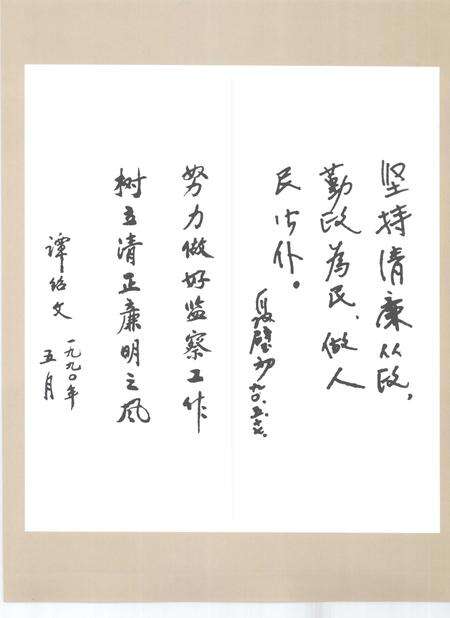 坚持清廉从政，
勤政为民、做人
民公仆。
努力做好监察工作
树立清正廉明之风
谭绍文
一九九〇年
五月